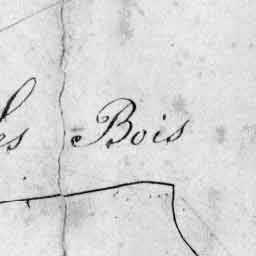 Les Bois